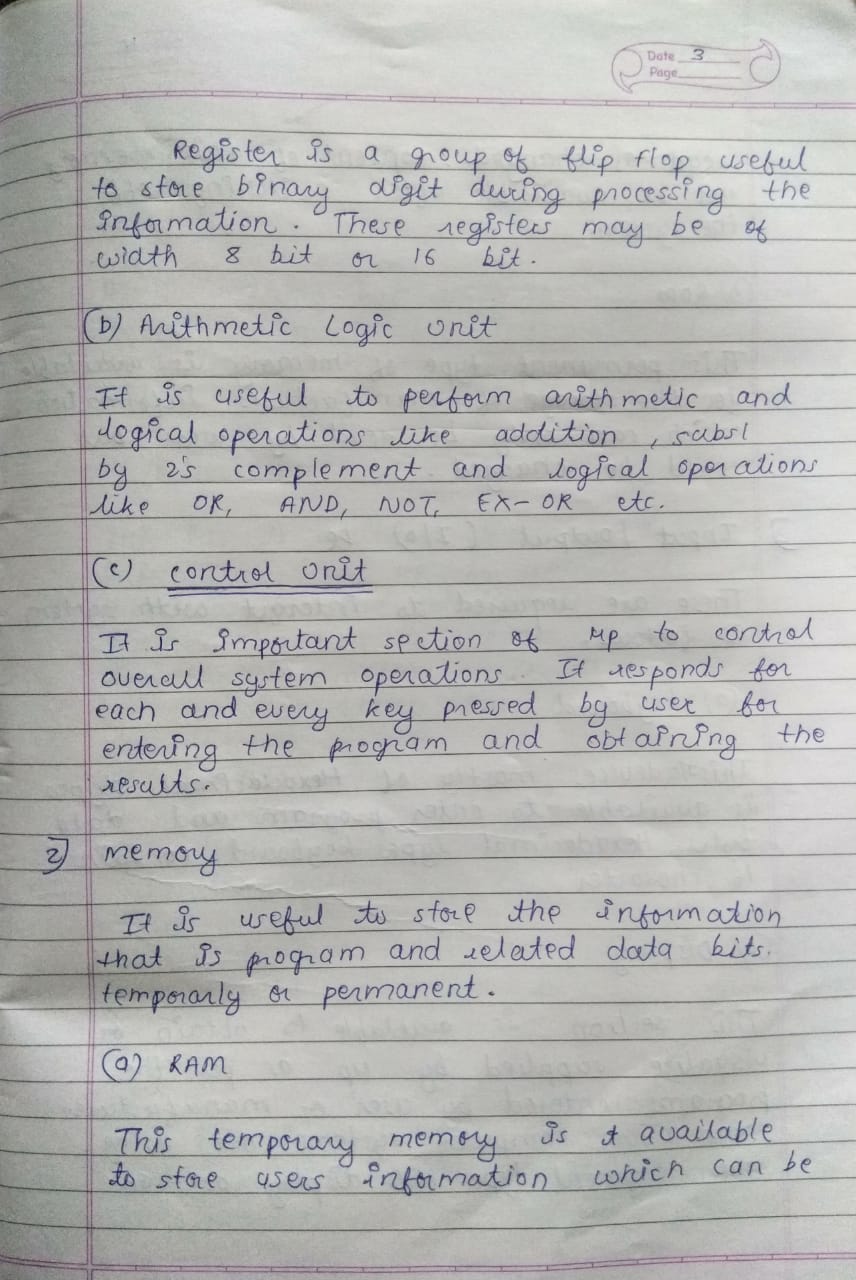 Date 3
Page
Register is a group of flip flop useful
to store binary digit during processing the
information. These registers may be of
width 8 bit or 16 bit.
(b) Arithmetic Logic unit
It is useful to perform arithmetic and
logical operations like addition, subsl
by 2's complement and logical operations
like OR, AND, NOT, EX-OR etc.
(c) control unit
It is important section of μp to control
overall system operations. It responds for
each and every key pressed by user for
entering the program and obtaining the
results.
2) memory
It is useful to store the information
that is program and related data bits.
temporarly or permanent.
(a) RAM
This temporary memory is available
to store users information which can be